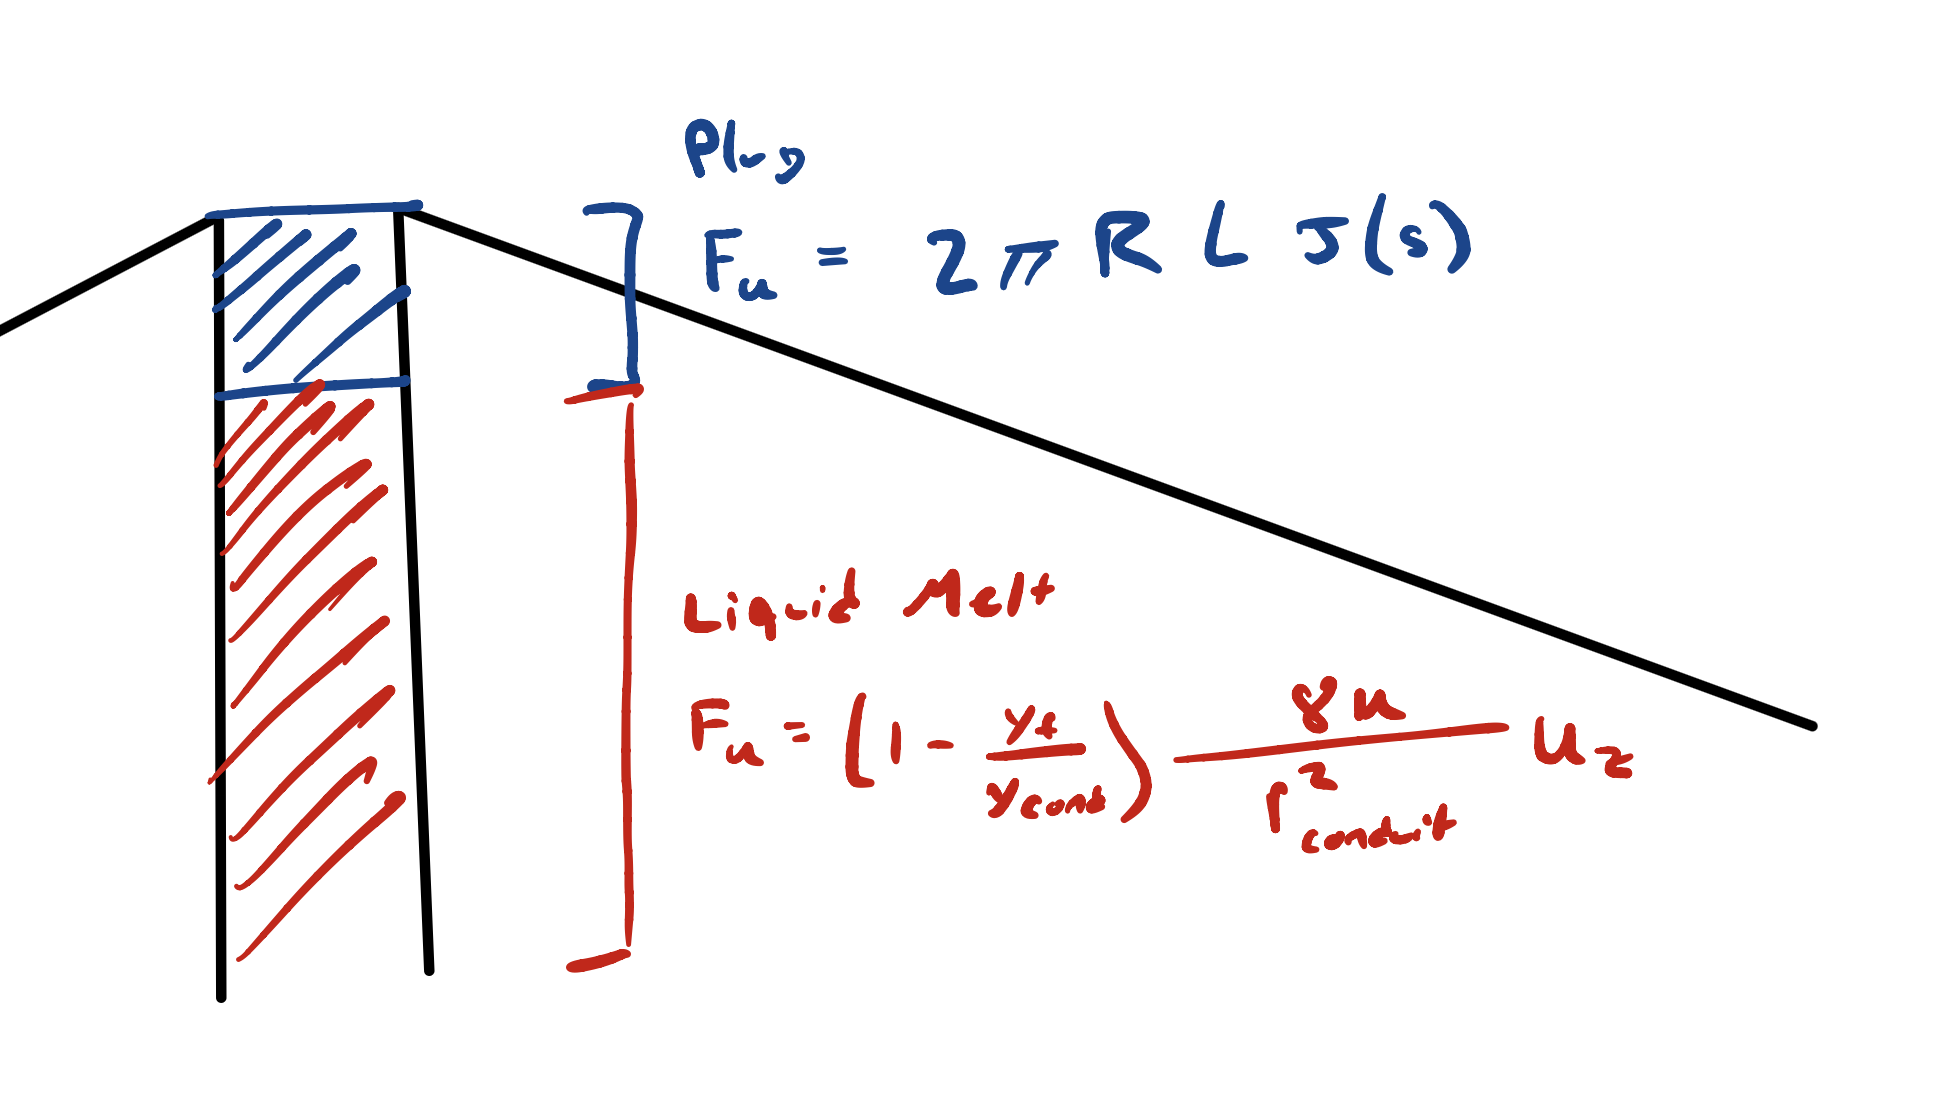 Plug
F_u = 2 π R L J(s)
Liquid Melt
F_u = (1 - y_t / y_cont) 8u / r²_conduit u_z